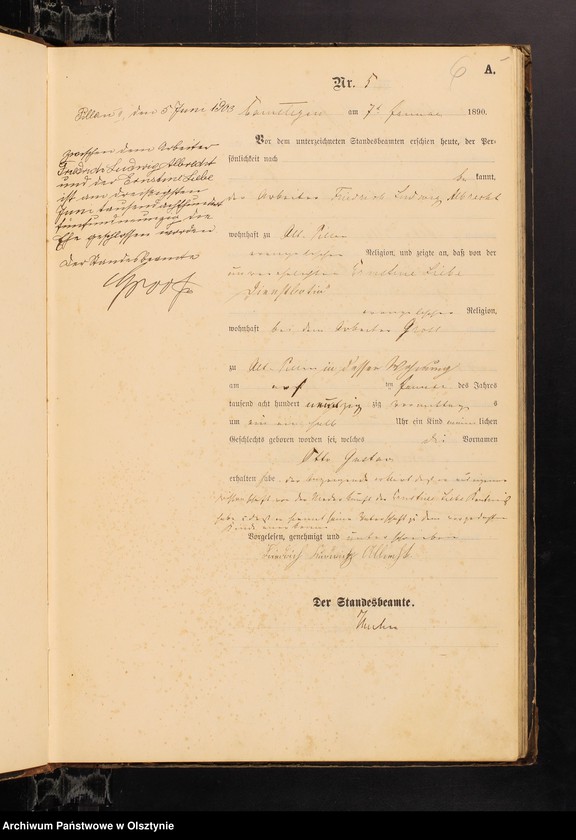 Nr. 5
6
A.
am 7t Januar 1890.
Vor dem unterzeichneten Standesbeamten erschien heute, der Per-
sönlichkeit nach
be kannt,
der Arbeiter Friedrich Ludwig Albrecht
wohnhaft zu Alt Pillau
evangelischer Religion, und zeigte an, daß von der
unverehelichten Ernstine Liebe
Dienstbotin
evangelischer Religion,
wohnhaft bei dem Arbeiter Groll
zu Alt-Pillau in dessen Wohnung
am ten Januar des Jahres
tausend acht hundert neunzig zig vormittag s
um ein halb Uhr ein Kind männlichen
Geschlechts geboren worden sei, welches die Vornamen
Otto Gustav
erhalten habe.
Vorgelesen, genehmigt und unterschrieben
Friedrich Ludwig Albrecht
Der Standesbeamte.
Pillau, den 5 Juni 1903
Zwischen dem Arbeiter
Friedrich Ludwig Albrecht
und der Ernstine Liebe
ist am dreißigsten
Juni tausend achthundert
fünfundneunzig die
Ehe geschlossen worden
Der Standesbeamte
Archiwum Państwowe w Olsztynie